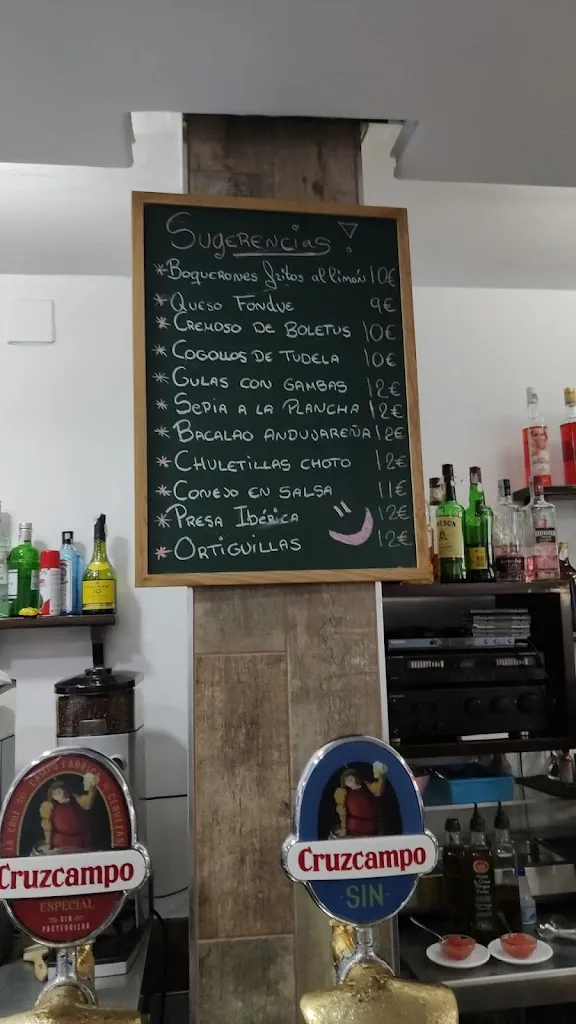 SUGERENCIAS!
* BOQUERONES fritos al limón 10€
* QUESO FONDUE 9€
* CREMOSO DE BOLETUS 10€
* COGOLLOS DE TUDELA 10€
* GULAS CON GAMBAS 12€
* SEPIA A LA PLANCHA 12€
* BACALAO ANDUJAREÑA 12€
* CHULETILLAS CHOTO 12€
* CONEJO EN SALSA 11€
* PRESA IBÉRICA 12€
* ORTIGUILLAS 12€
Cruzcampo
ESPECIAL
SIN
PASTEURIZAR
Cruzcampo
SIN